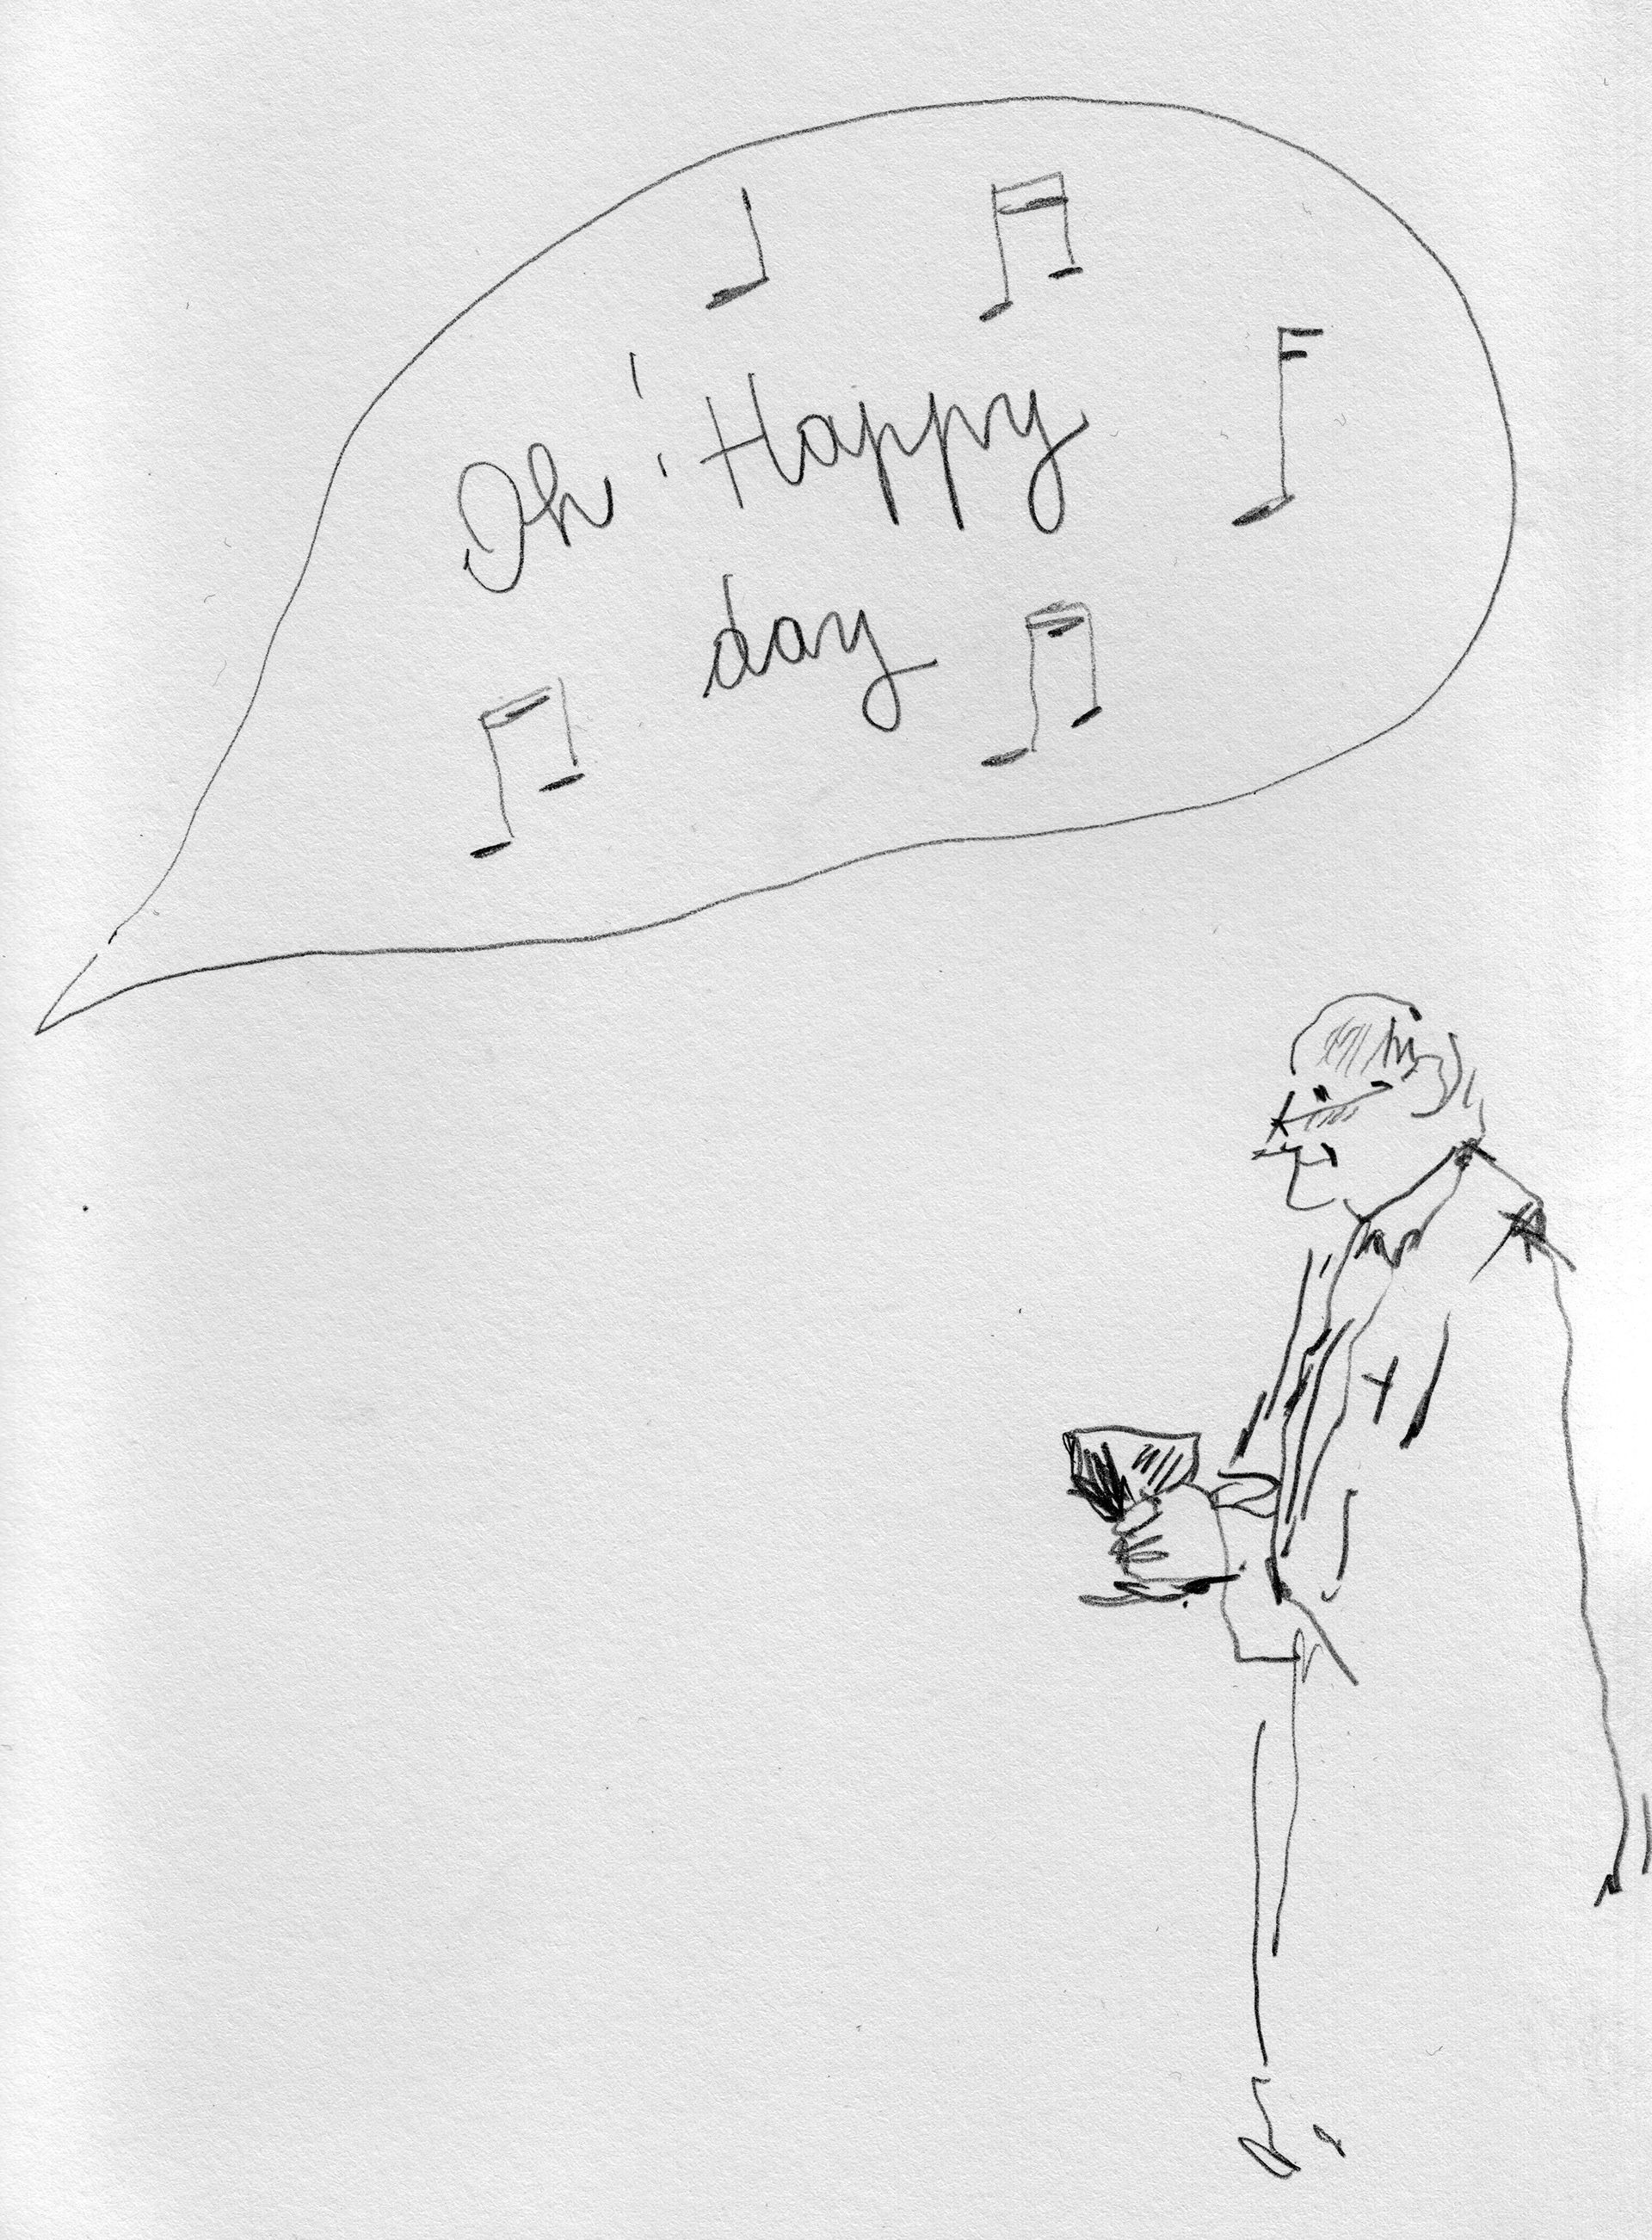 Oh! Happy
day